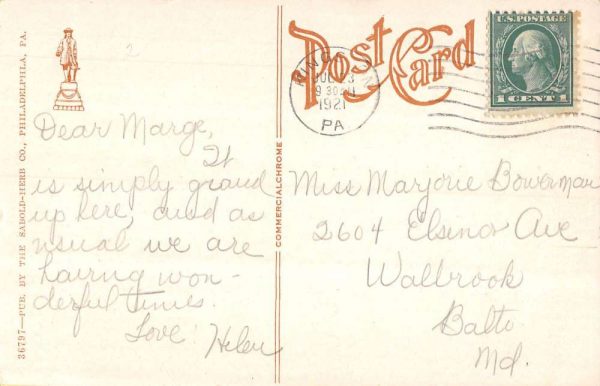 Post Card
U.S. POSTAGE
1 CENT 1
JUL 23
9 30 AM
1921
PA
Dear Marge,
It
is simply grand
up here, and as
usual we are
having won-
derful times.
Love
Helen
Miss Marjorie Bowerman
2604 Elsinor Ave
Walbrook
Balto
Md.
COMMERCIALCHROME
36797—PUB. BY THE SABOLD-HERB CO., PHILADELPHIA, PA.
2